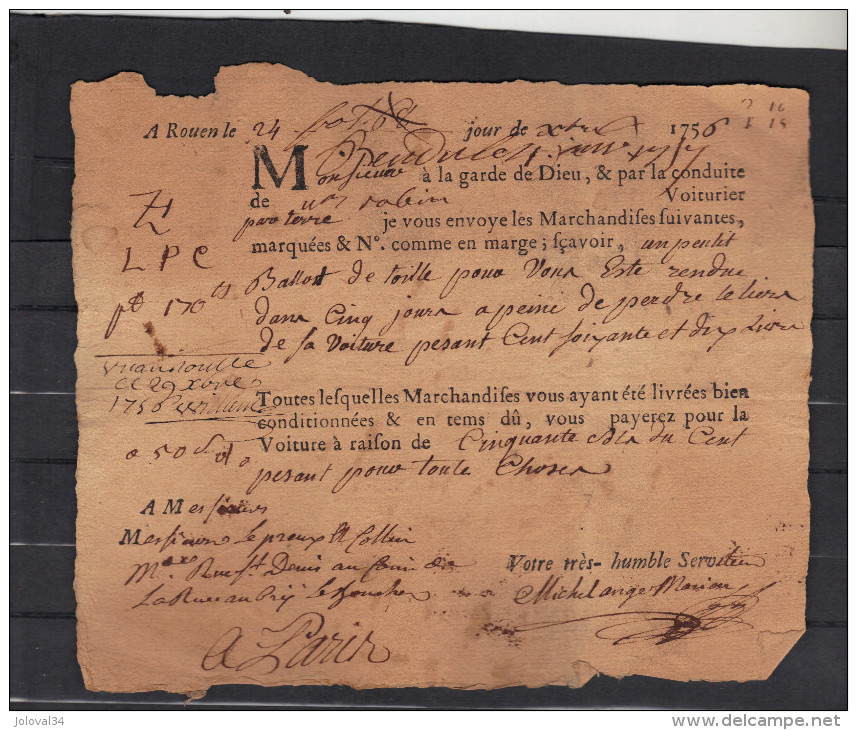 A Rouen le 24 jour de xbre 1756
Monsieur à la garde de Dieu, & par la conduite
de robin Voiturier
par terre je vous envoye les Marchandises suivantes,
marquées & N°. comme en marge; sçavoir, un petit
L P C
Ballot de toille pour Vous Este rendue
pt 170 lb
dans Cinq jours a peine de perdre le tiers
de sa Voiture pesant Cent soixante et dix Livre
ce 29 xbre
1756
Toutes lesquelles Marchandises vous ayant été livrées bien
conditionnées & en tems dû, vous payerez pour la
Voiture à raison de Cinquante sols du Cent
a 50 s
pesant pour toute Choses
A Messieurs
Messieurs Le preux & Collin
Mds Rue St Denis au Coin de
La Rue aubry le boucher
Votre très-humble Serviteur
Michel ange Marion
A Paris
joloval34
www.delcampe.net